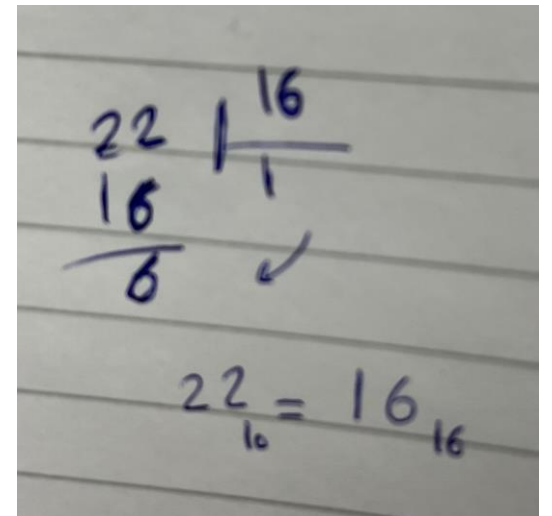 22 | 16
16 1
6
22₁₀ = 16₁₆